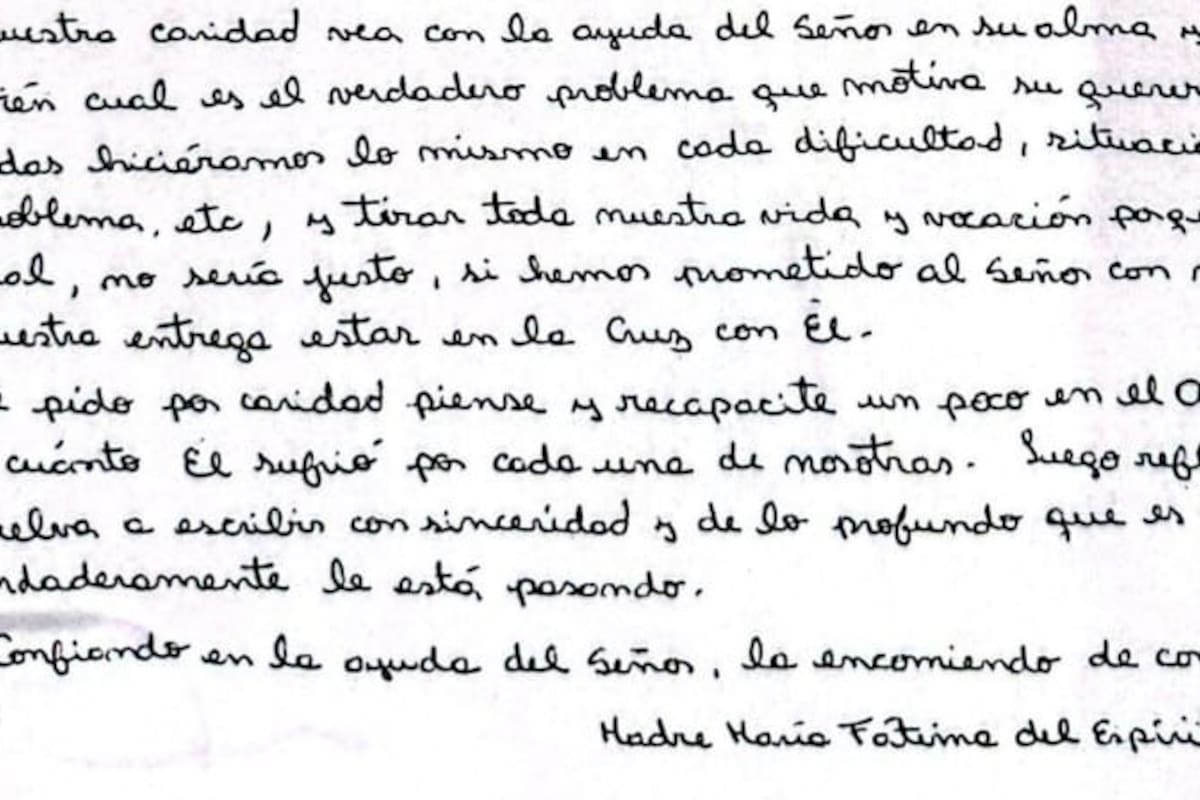 uestra caridad vea con la ayuda del Señor en su alma y
ién cual es el verdadero problema que motiva su querer
das hiciéramos lo mismo en cada dificultad, situaci
oblema, etc, y tirar toda nuestra vida y vocación porq
al, no sería justo, si hemos prometido al Señor con n
uestra entrega estar en la Cruz con Él.
pido por caridad piense y recapacite un poco en el O
cuánto Él sufrió por cada una de nosotras. Luego refl
elva a escribir con sinceridad y de lo profundo que es
rdaderamente le está pasando.
Confiando en la ayuda del Señor, la encomiendo de co
Madre María Fátima del Espíri